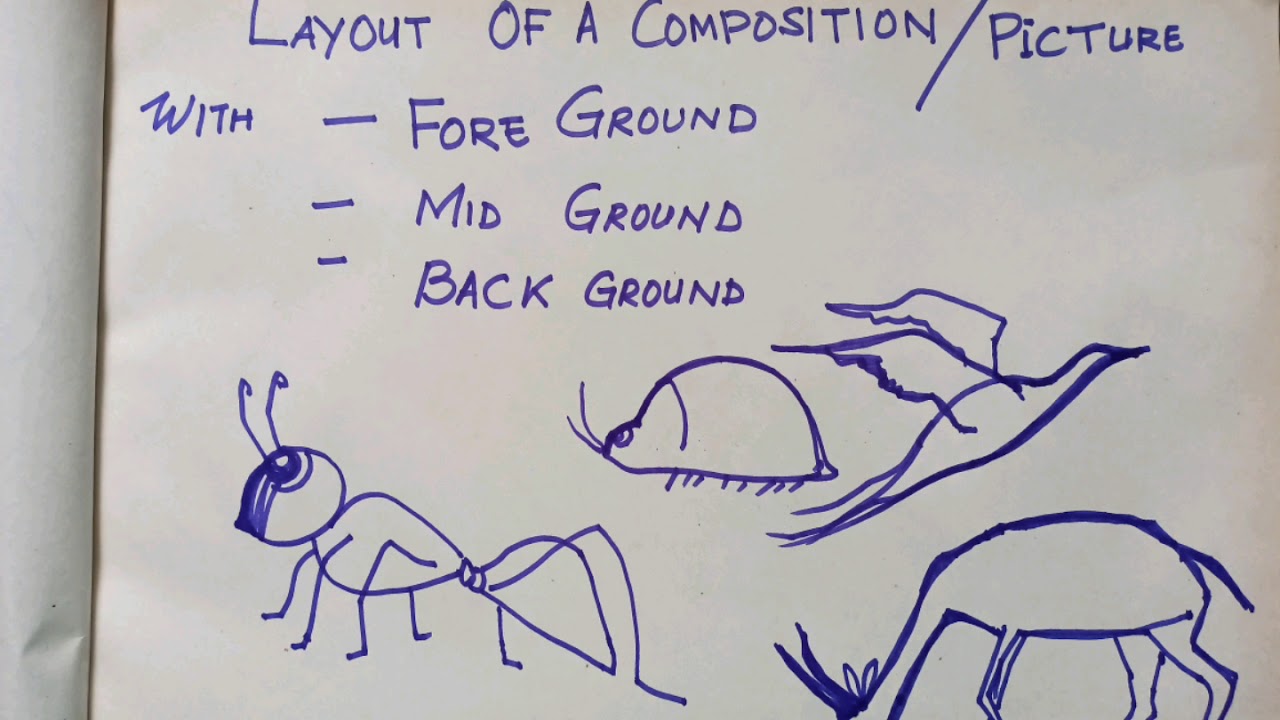 LAYOUT OF A COMPOSITION/PiCTURE
WITH — FORE GROUND
— MID GROUND
— BACK GROUND